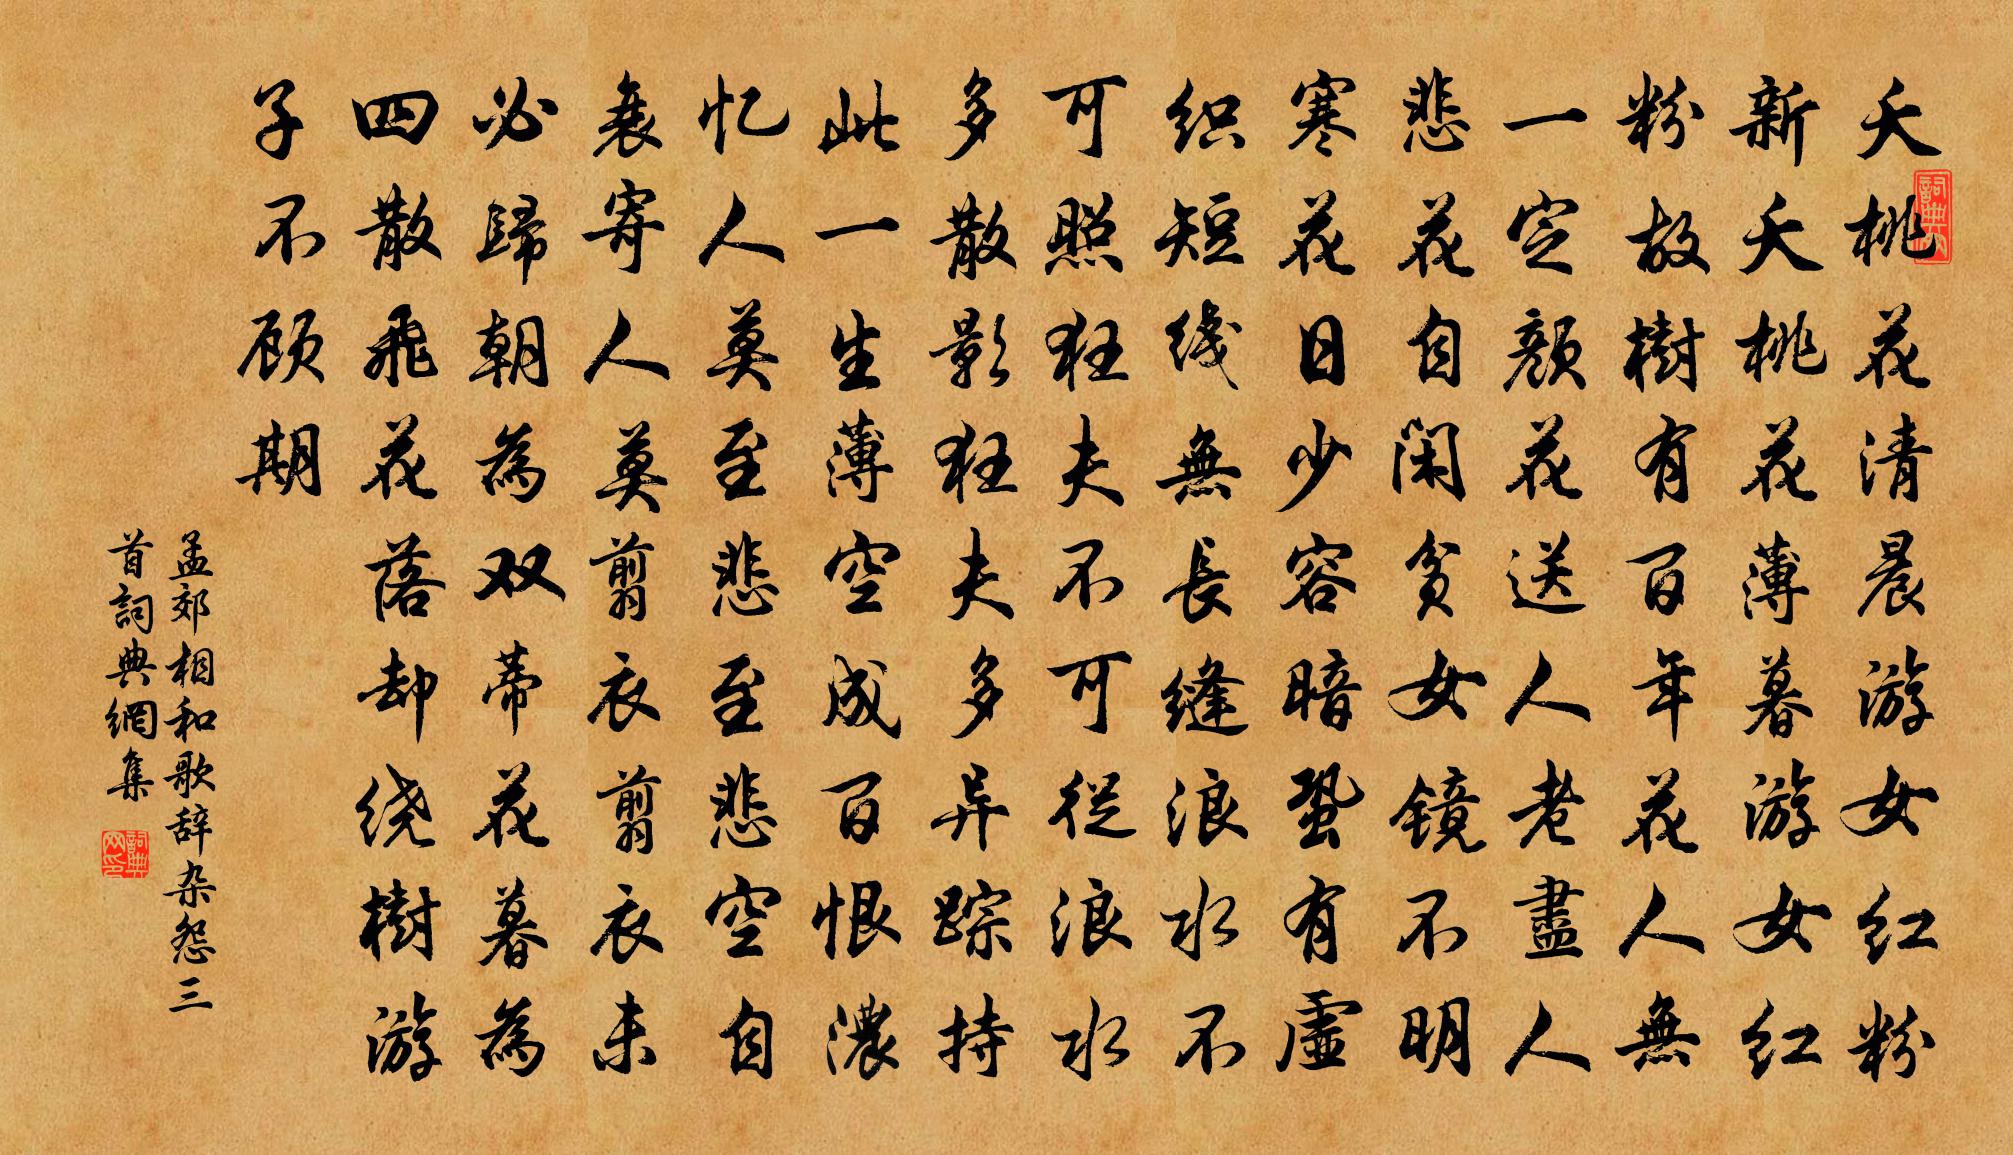 夭桃花清晨游女红粉
新夭桃花薄暮游女红
粉故樹有百年花人無
一定颜花送人老盡人
悲花自闲贫女镜不明
寒花日少容暗蛩有虚
织短线無長缝浪水不
可照狂夫不可從浪水
多散影狂夫多异踪持
此一生薄空成百恨濃
忆人莫至悲至悲空自
衰寄人莫翦衣翦衣未
必歸朝為双蒂花暮為
四散飛花落却绕樹游
子不顾期
孟郊相和歌辞杂怨三
首詞典網集
詞典
詞典網印